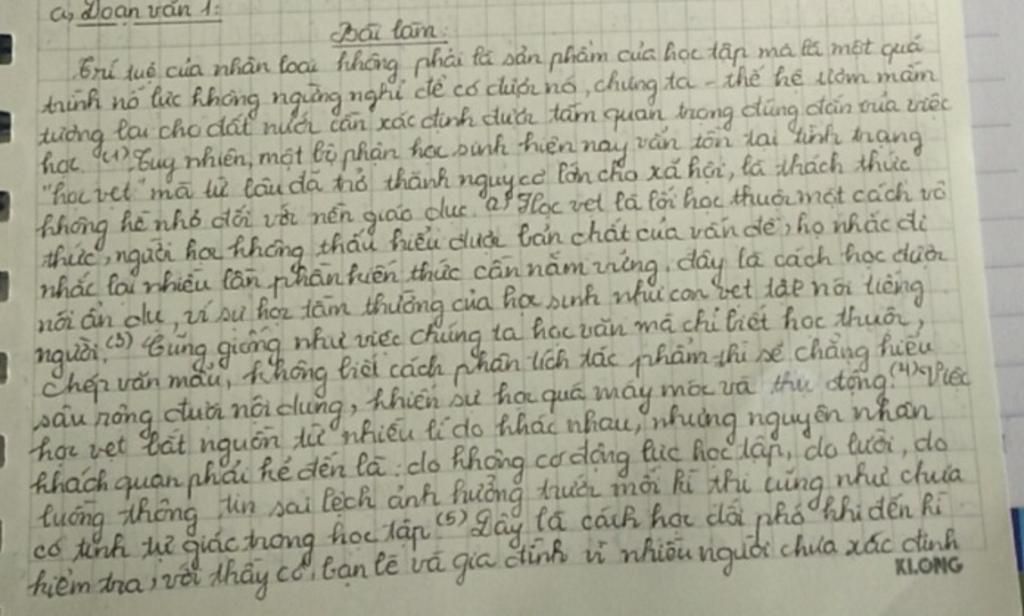 a, Đoạn văn 1:
Bài làm:
Trí tuệ của nhân loại không phải là sản phẩm của học tập mà là một quá
trình nỗ lực không ngừng nghỉ để có được nó, chúng ta - thế hệ ươm mầm
tương lai cho đất nước cần xác định được tầm quan trọng đúng đắn của việc
học (1). Tuy nhiên, một bộ phận học sinh hiện nay vẫn tồn tại tình trạng
"học vẹt" mà từ lâu đã trở thành nguy cơ lớn cho xã hội, là thách thức
không hề nhỏ đối với nền giáo dục. (2) Học vẹt là lối học thuộc một cách vô
thức, người học không thấu hiểu được bản chất của vấn đề, họ nhắc đi
nhắc lại nhiều lần phần kiến thức cần nắm vững, đây là cách học được
nói ẩn dụ, ví sự học tầm thường của học sinh như con vẹt tập nói tiếng
người. (3) Cũng giống như việc chúng ta học văn mà chỉ biết học thuộc,
chép văn mẫu, không biết cách phân tích tác phẩm thì sẽ chẳng hiểu
sâu rộng được nội dung, khiến sự học quá máy móc và thụ động. (4) Việc
học vẹt bắt nguồn từ nhiều lí do khác nhau, nhưng nguyên nhân
khách quan phải kể đến là: do không có động lực học tập, do lười, do
luồng thông tin sai lệch ảnh hưởng trước mỗi kì thi cũng như chưa
có tính tự giác trong học tập. (5) Đây là cách học đối phó khi đến kì
kiểm tra, với thầy cô, bạn bè và gia đình vì nhiều người chưa xác định
KLONG